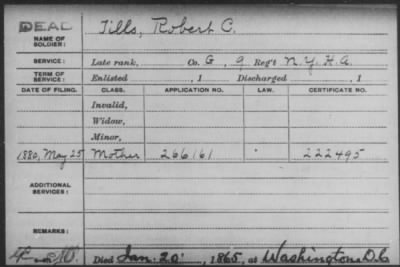 DEAD
NAME OF SOLDIER: Tills, Robert C.
SERVICE: Late rank, Co. G, 9 Reg't N.Y.H.A.
TERM OF SERVICE: Enlisted , 1 Discharged , 1
DATE OF FILING. CLASS. APPLICATION NO. LAW. CERTIFICATE NO.
Invalid,
Widow,
Minor,
1880, May 25 Mother 266161 222495
ADDITIONAL SERVICES:
REMARKS:
Died Jan. 20, 1865, at Washington D.C